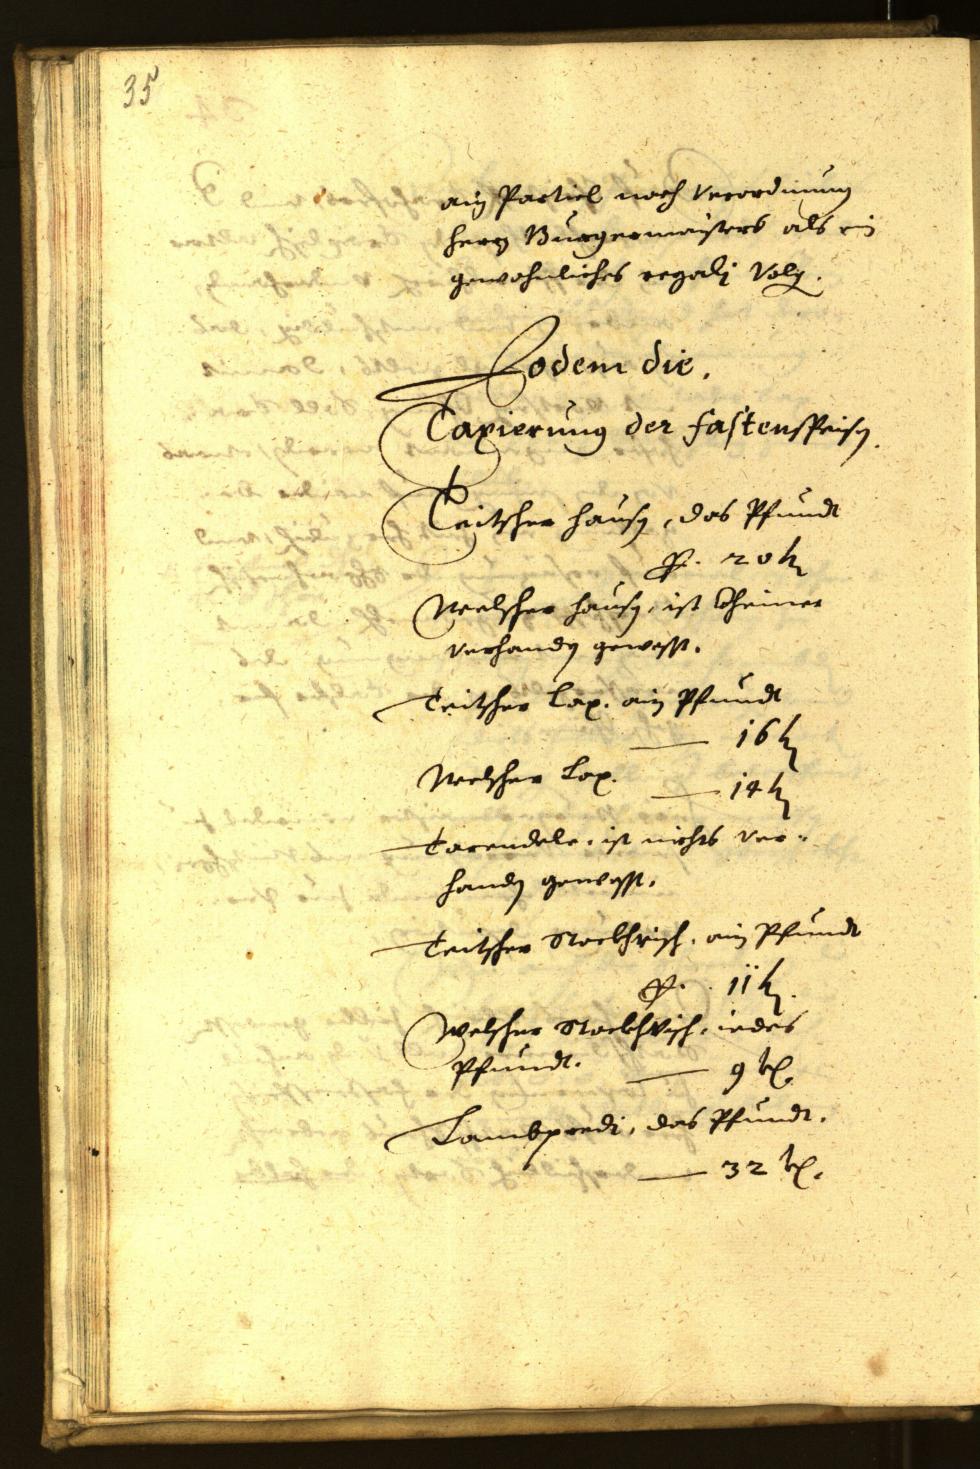 35
ain Partiel nach Verordnung
herrn Burgermaisters als ein
gewohnliches regali Volg.
Eodem die.
Taxierung der fastenspeisen.
Teitscher hausn, das Pfundt
p. 20 k
Welscher hausn, ist kheiner
verhanden gewesst.
Teitscher Lax. ain Pfundt
— 16 k
Welscher Lax. — 14 k
Tarendele, ist nichts ver-
handen gewesst.
Teitscher Stockhvisch, ain Pfundt
p. 11 k.
Welscher Stockhvisch, iedes
Pfundt. — 9 k.
Lambpredi, das Pfundt.
— 32 k.